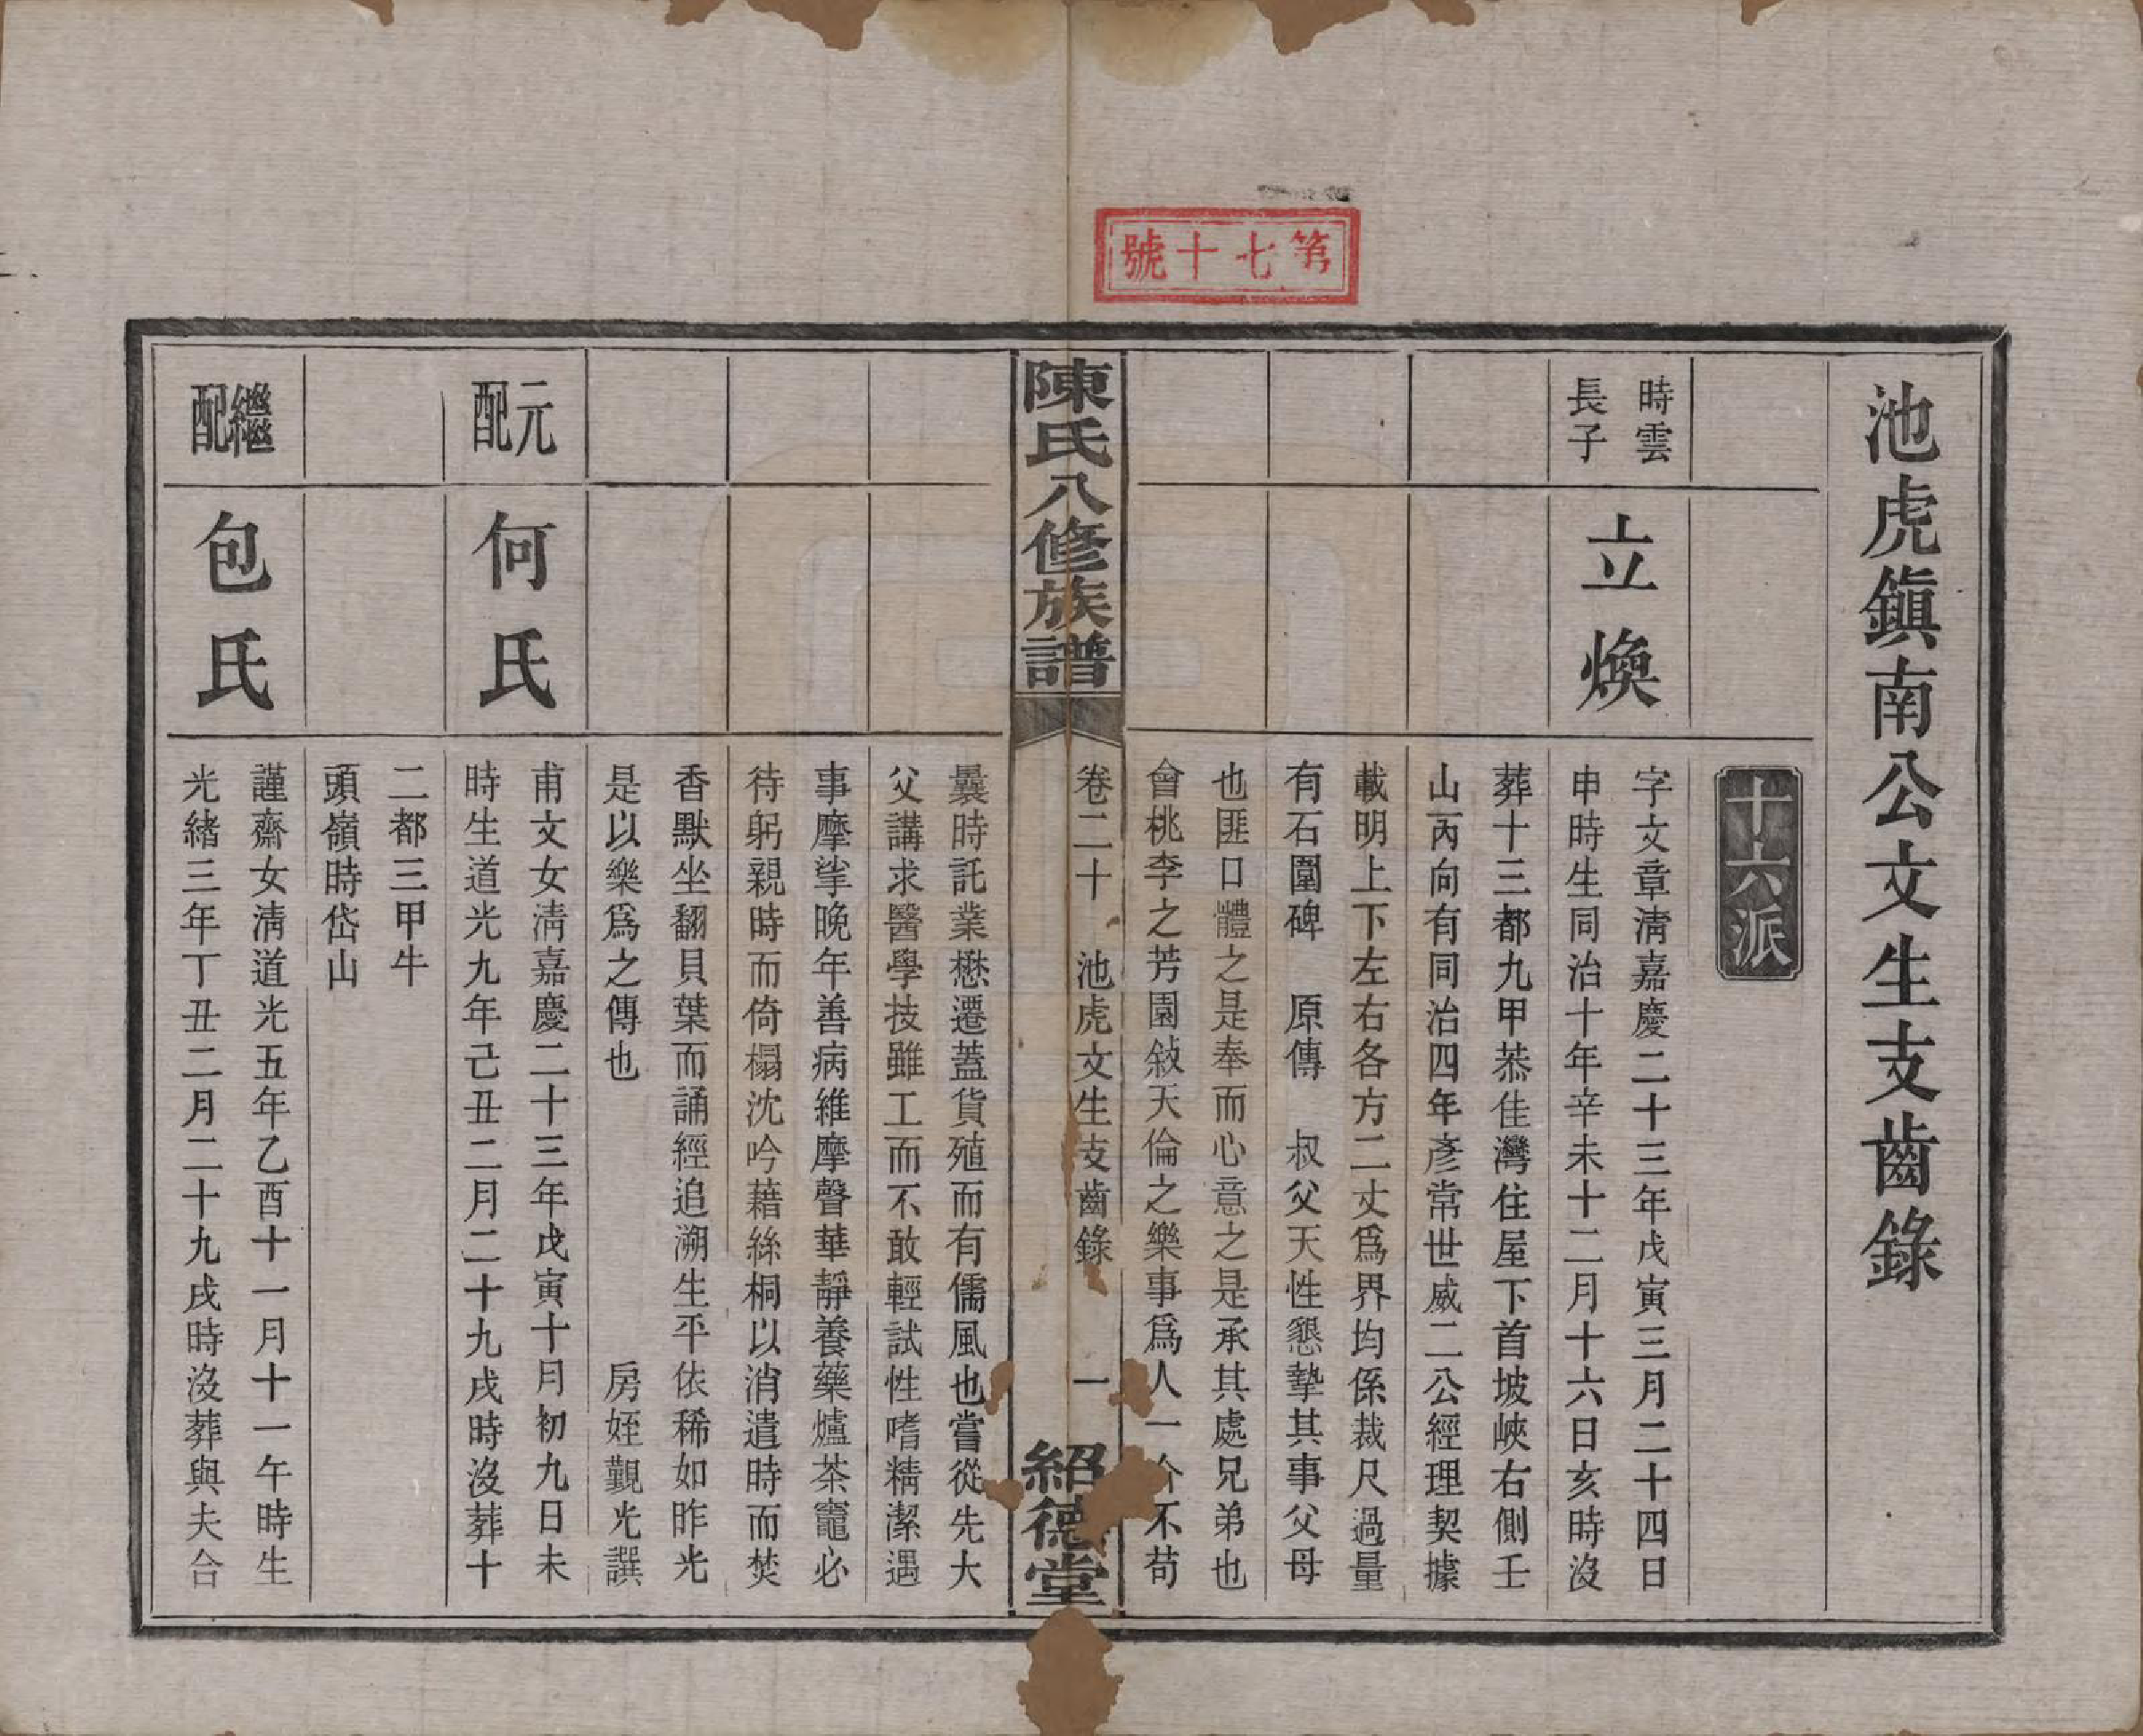 第七十號
池虎鎮南公文生支齒錄
十六派
時雲
長子
立煥
字文章淸嘉慶二十三年戊寅三月二十四日
申時生同治十年辛未十二月十六日亥時沒
葬十三都九甲恭佳灣住屋下首坡峽右側壬
山丙向有同治四年彥常世威二公經理契據
載明上下左右各方二丈爲界均係裁尺過量
有石圍碑 原傳 叔父天性懇摯其事父母
也匪口體之是奉而心意之是承其處兄弟也
會桃李之芳園敍天倫之樂事爲人一介不苟
陳氏八修族譜
卷二十 池虎文生支齒錄 一
紹德堂
曩時託業懋遷蓋貨殖而有儒風也嘗從先大
父講求醫學技雖工而不敢輕試性嗜精潔遇
事摩挲晚年善病維摩聲華靜養藥爐茶竈必
待躬親時而倚榻沈吟藉絲桐以消遣時而焚
香默坐翻貝葉而誦經追溯生平依稀如昨光
是以樂爲之傳也 房姪覲光譔
元配
何氏
甫文女淸嘉慶二十三年戊寅十月初九日未
時生道光九年己丑二月二十九戌時沒葬十
二都三甲牛
頭嶺時岱山
繼配
包氏
謹齋女淸道光五年乙酉十一月十一午時生
光緖三年丁丑二月二十九戌時沒葬與夫合